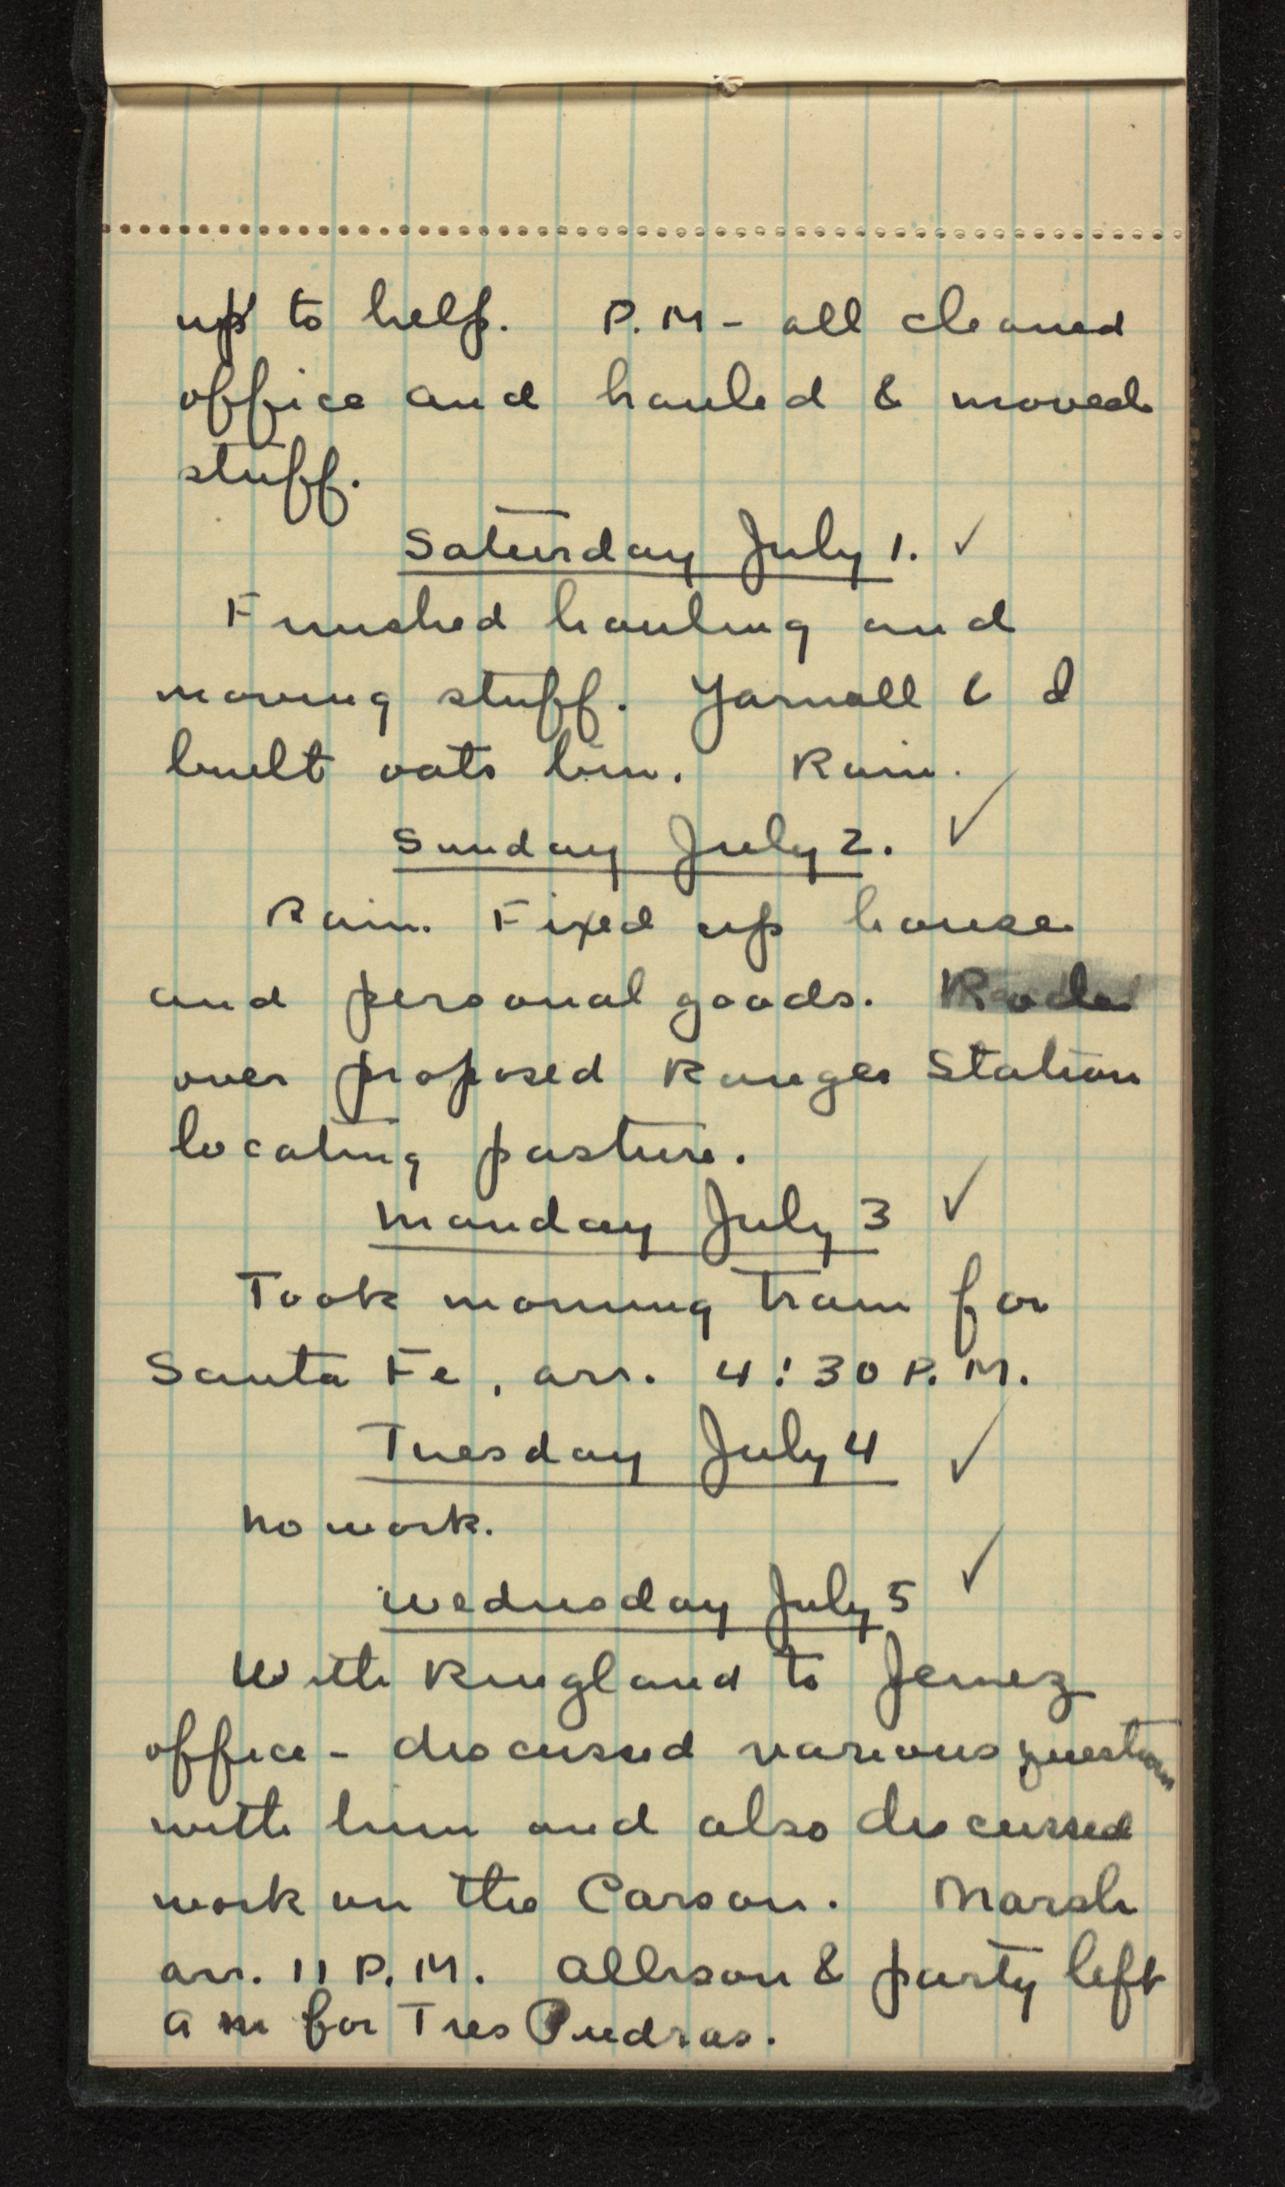 up to help. P.M - all cleaned
office and hauled & moved
stuff.
Saturday July 1. ✓
Finished hauling and
moving stuff. Yarnall & I
built oats bin. Rain.
Sunday July 2. ✓
Rain. Fixed up house
and personal goods. Rode
over proposed Ranger Station
locating pasture.
Monday July 3 ✓
Took morning train for
Santa Fe, arr. 4:30 P.M.
Tuesday July 4 ✓
No work.
Wednesday July 5 ✓
With Ringland to Jemez
office - discussed various questions
with him and also discussed
work on the Carson. Marsh
arr. 11 P.M. Allison & party left
a m for Tres Piedras.